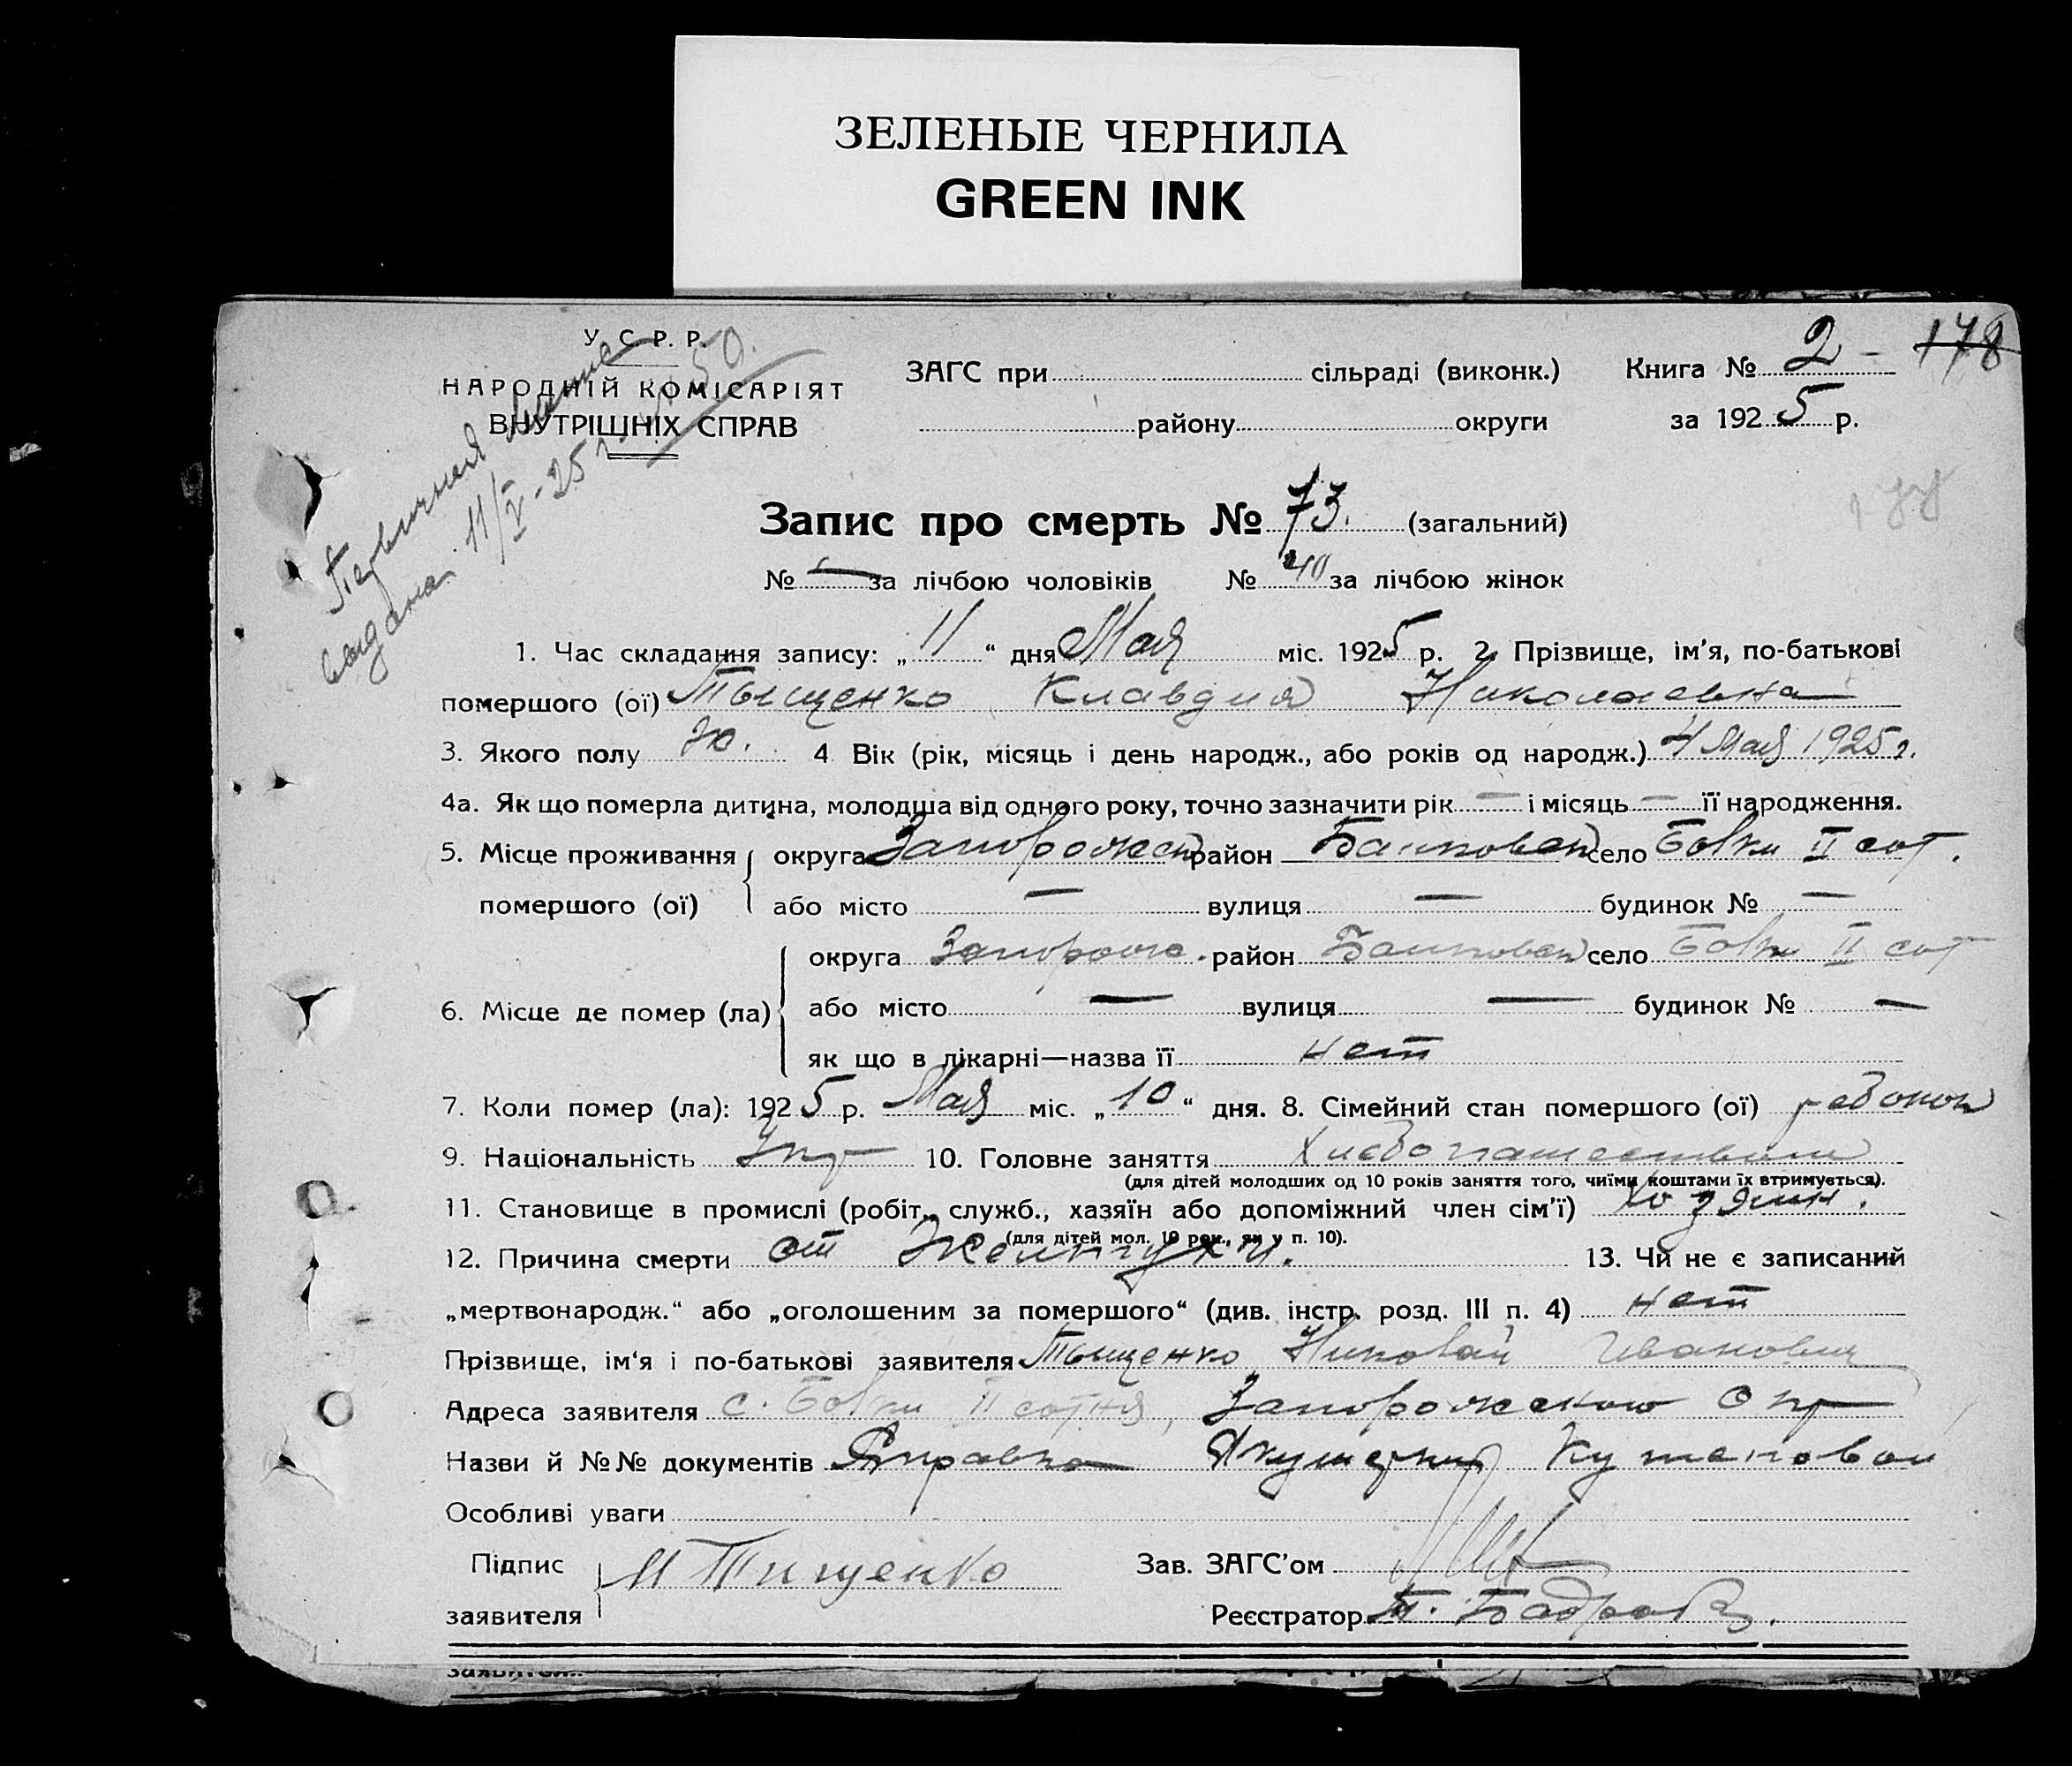 ЗЕЛЕНЫЕ ЧЕРНИЛА
GREEN INK
У. С. Р. Р.
НАРОДНІЙ КОМІСАРІЯТ
ВНУТРІШНІХ СПРАВ
ЗАГС при сільраді (виконк.) Книга № 2 - 178
району округи за 1925 р.
выдана 11/V-25 г. № 50.
Запис про смерть № 73. (загальний)
№ — за лічбою чоловіків № 40 за лічбою жінок
1. Час складання запису: „11“ дня Мая міс. 1925 р. 2. Прізвище, ім'я, по-батькові
помершого (ої) Тыщенко Клавдия Николаевна
3. Якого полу Ж. 4 Вік (рік, місяць і день народж., або років од народж.) 4 Мая 1925 г.
4а. Як що померла дитина, молодша від одного року, точно зазначити рік — і місяць — її народження.
5. Місце проживання помершого (ої) округа Запорожск район село II сот.
або місто — вулиця — будинок № —
6. Місце де помер (ла) округа Запорож. район село II сот
або місто — вулиця — будинок № —
як що в лікарні—назва її нет
7. Коли помер (ла): 1925 р. Мая міс. „10“ дня. 8. Сімейний стан помершого (ої) ребонок
9. Національність Укр 10. Головне заняття Хлебопашеством
(для дітей молодших од 10 років заняття того, чиїми коштами їх втримується).
11. Становище в промислі (робіт., служб., хазяїн або допоміжний член сім'ї) хозяин.
(для дітей мол. 10 рок., як у п. 10).
12. Причина смерти от Желтухи. 13. Чи не є записаний
„мертвонародж.“ або „оголошеним за помершого“ (див. інстр. розд. III п. 4) нет
Прізвище, ім'я і по-батькові заявителя Тыщенко Николай Иванович
Адреса заявителя с. II сотня, Запорожского Окр
Назви й №№ документів Справка Акушерки
Особливі уваги
Підпис заявителя Н Тищенко Зав. ЗАГС'ом
Реєстратор